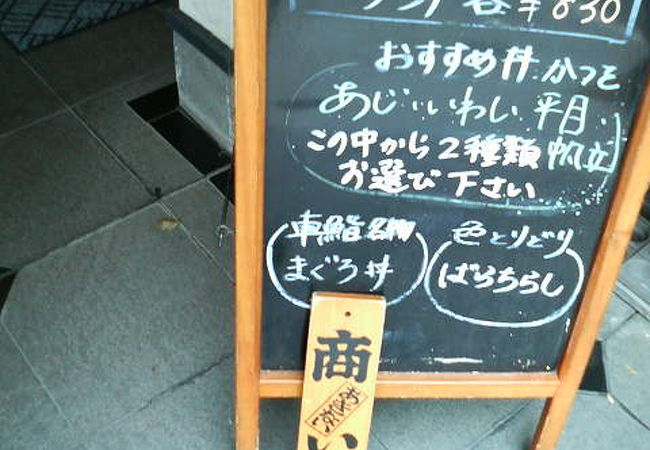 ランチ 各¥830
おすすめ丼 かつを
あじ いわし 平目
この中から2種類 帆立
お選び下さい
車鮨名物
まぐろ丼
色とりどり
ばらちらし
商
い